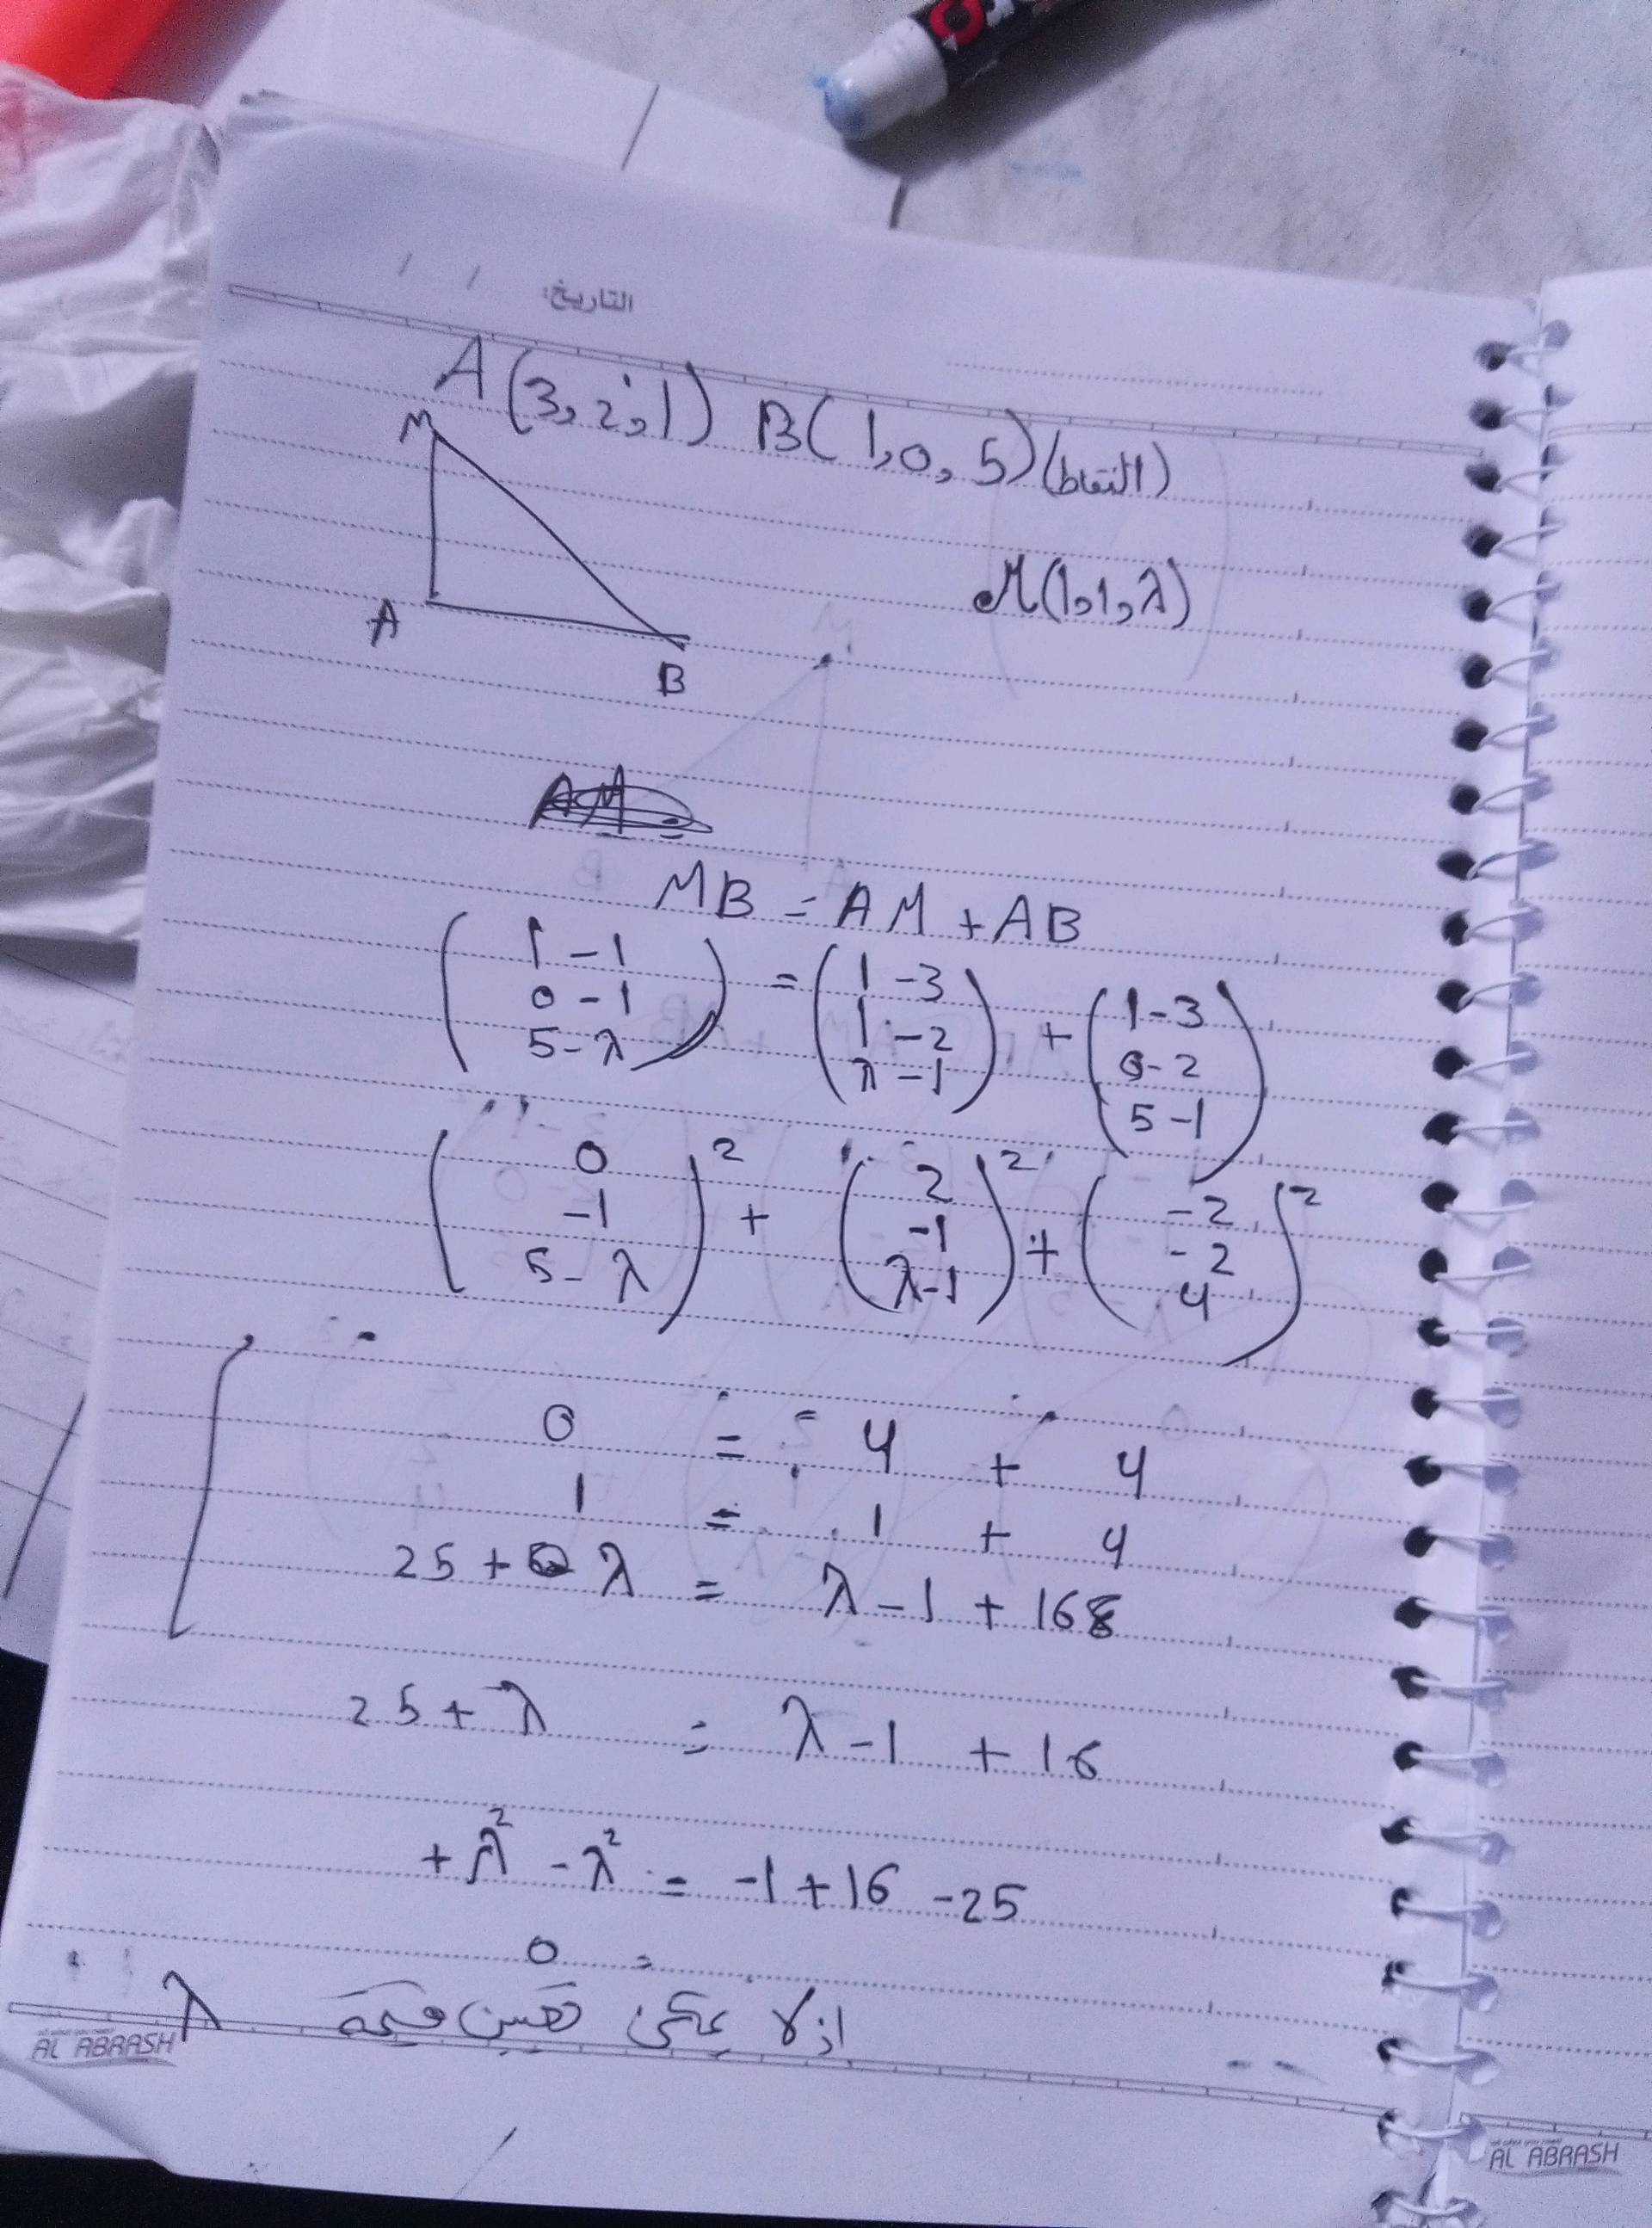 التاريخ: / /
A(3,2,1) B(1,0,5) (النقاط)
M
M(1,1,λ)
A
B
AM
MB = AM + AB
(1-1 0-1 5-λ) = (1-3 1-2 λ-1) + (1-3 0-2 5-1)
(0 -1 5-λ)² + (2 -1 λ-1)² + (-2 -2 4)²
0 = 4 + 4
1 = 1 + 4
25 + λ = λ-1 + 168
25 + λ = λ-1 + 16
+λ² - λ² = -1+16 -25
0 =
اذلا يمكن تعيين قيمة λ
AL ABRASH
AL ABRASH